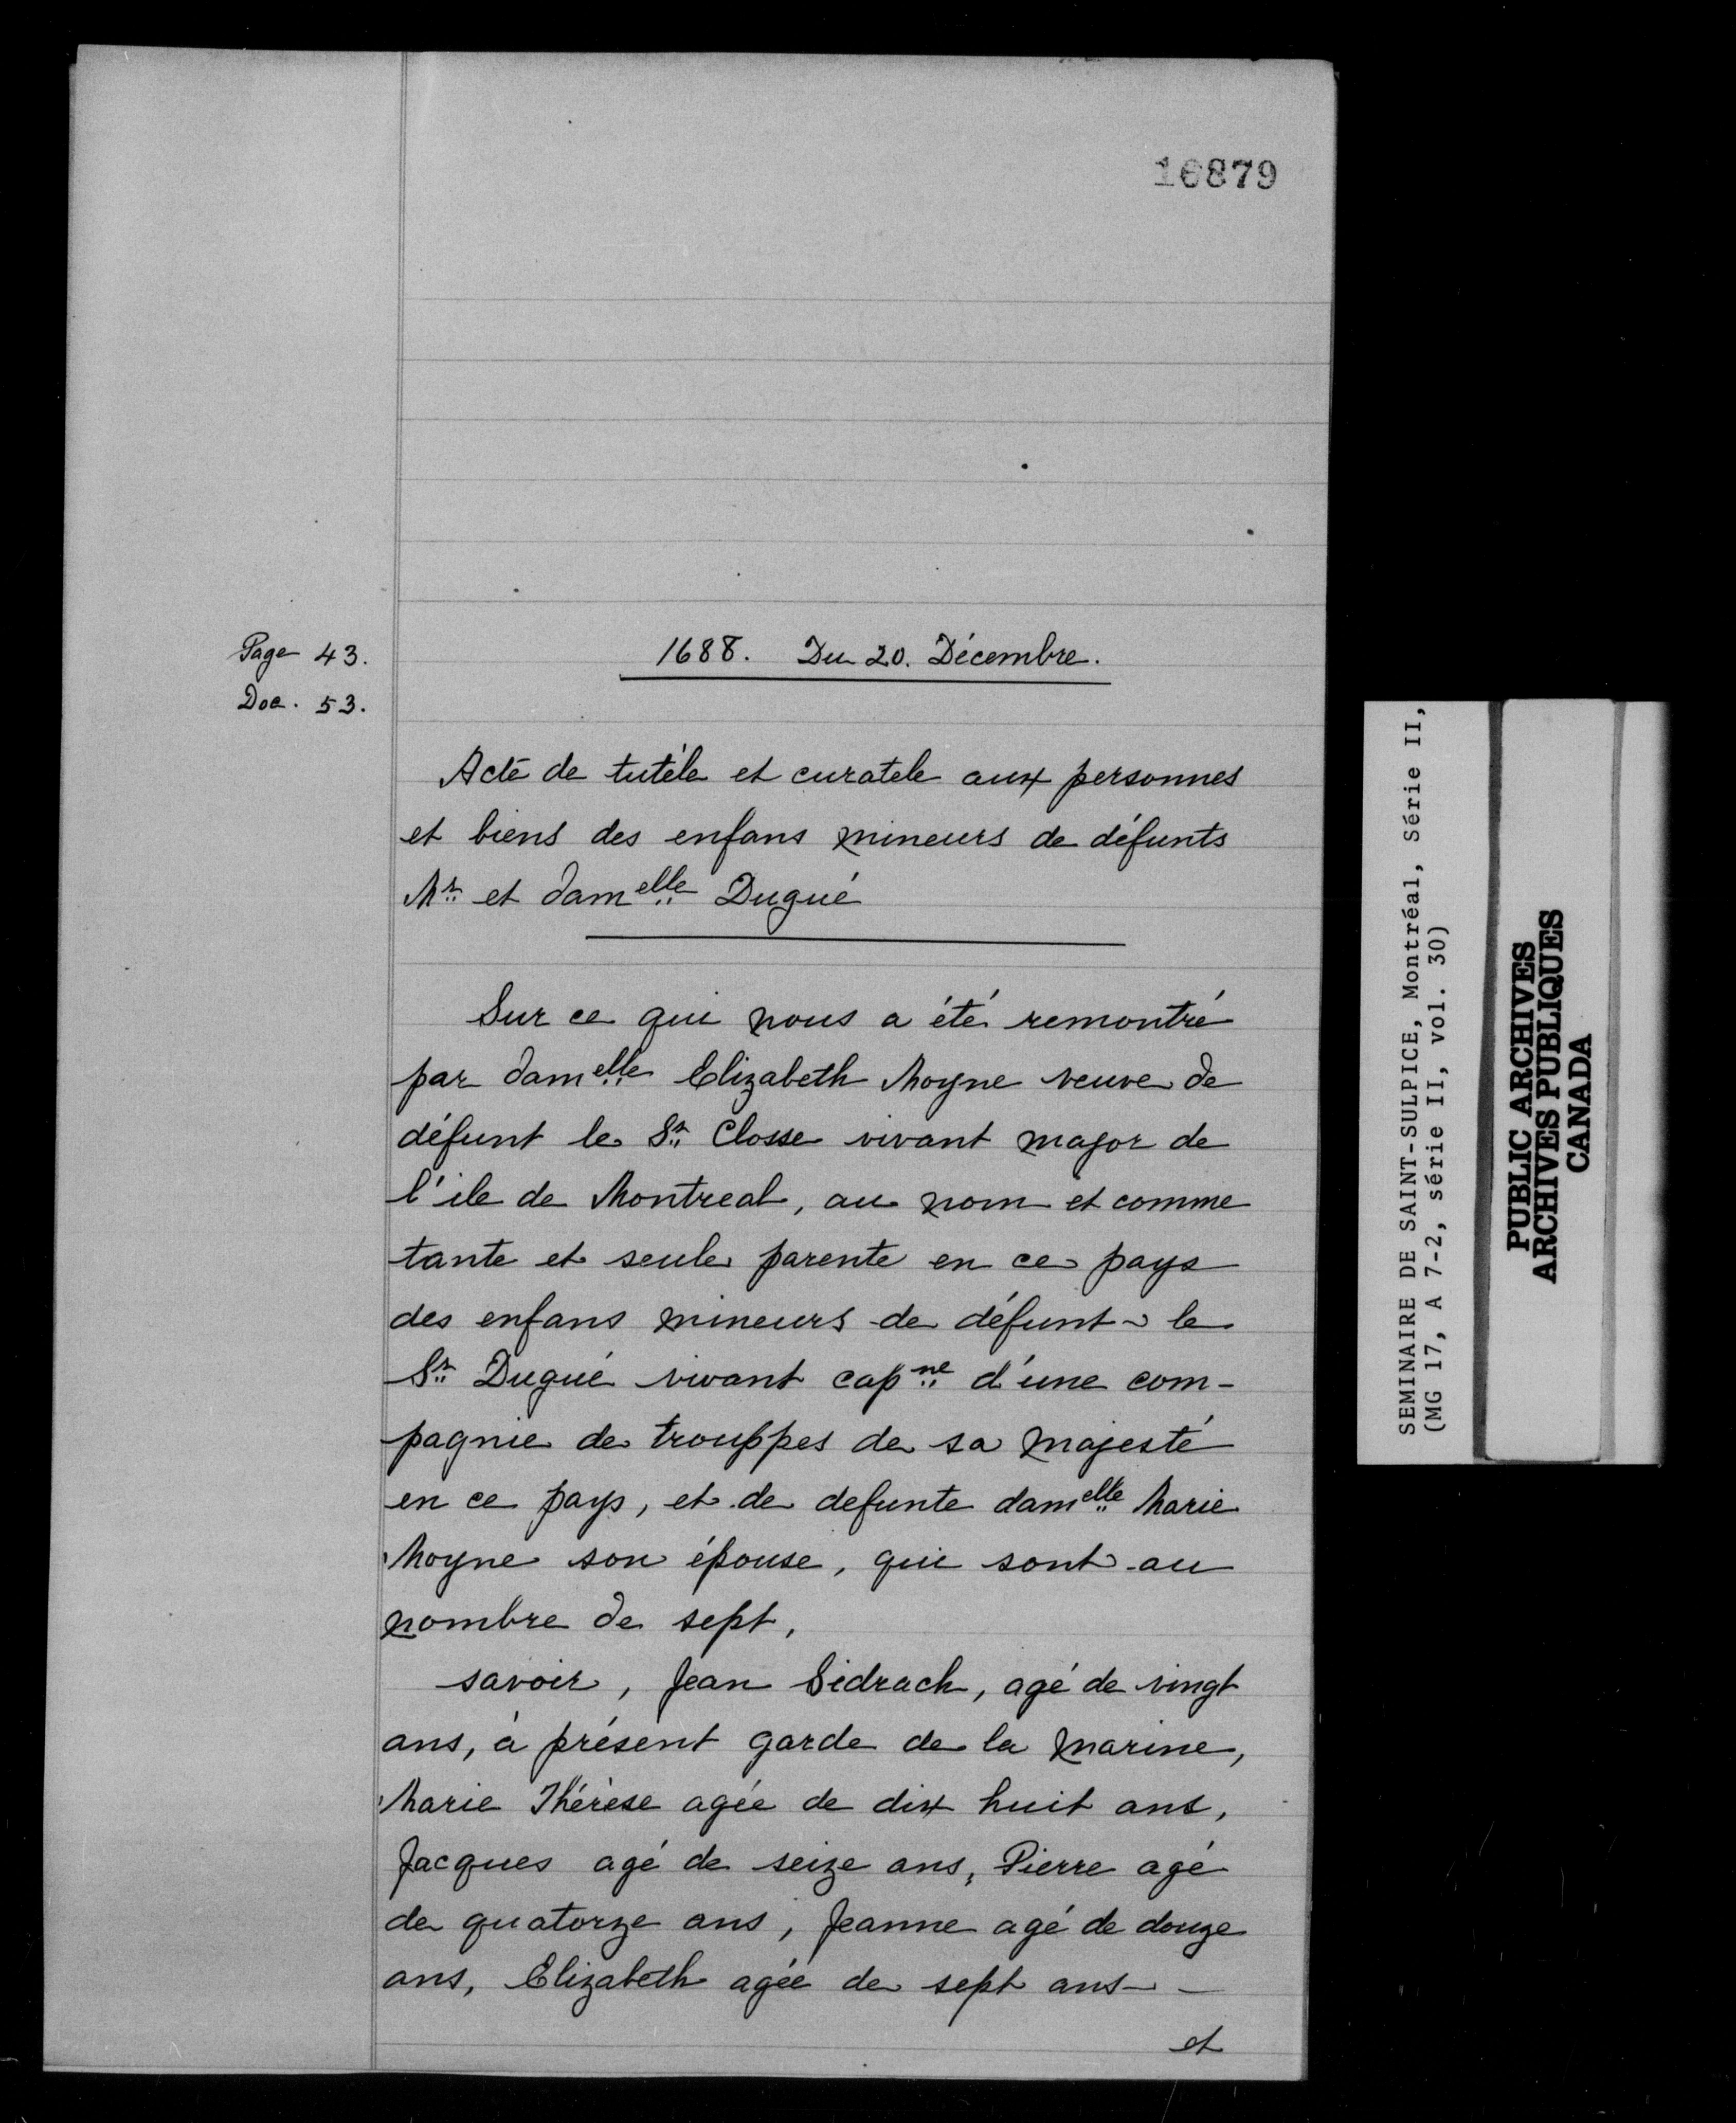 16879
Page 43.
Doc. 53.
1688. Du 20. Décembre.
Acte de tutéle et curatele aux personnes
et biens des enfans mineurs de défunts
Mr et damelle Dugué
Sur ce qui nous a été remontré
par damelle Elizabeth Moyne veuve de
défunt le Sr Closse vivant major de
l'ile de Montreal, au nom et comme
tante et seule parente en ce pays
des enfans mineurs de défunt le
Sr Dugué vivant capne d'une com-
pagnie de trouppes de sa majesté
en ce pays, et de defunte damelle Marie
Moyne son épouse, qui sont au
nombre de sept,
savoir, Jean Sidrach, agé de vingt
ans, à présent garde de la marine,
Marie Thérèse agée de dix huit ans,
Jacques agé de seize ans, Pierre agé
de quatorze ans, Jeanne agé de douze
ans, Elizabeth agée de sept ans —
et
SEMINAIRE DE SAINT-SULPICE, Montréal, Série II,
(MG 17, A 7-2, série II, vol. 30)
PUBLIC ARCHIVES
ARCHIVES PUBLIQUES
CANADA